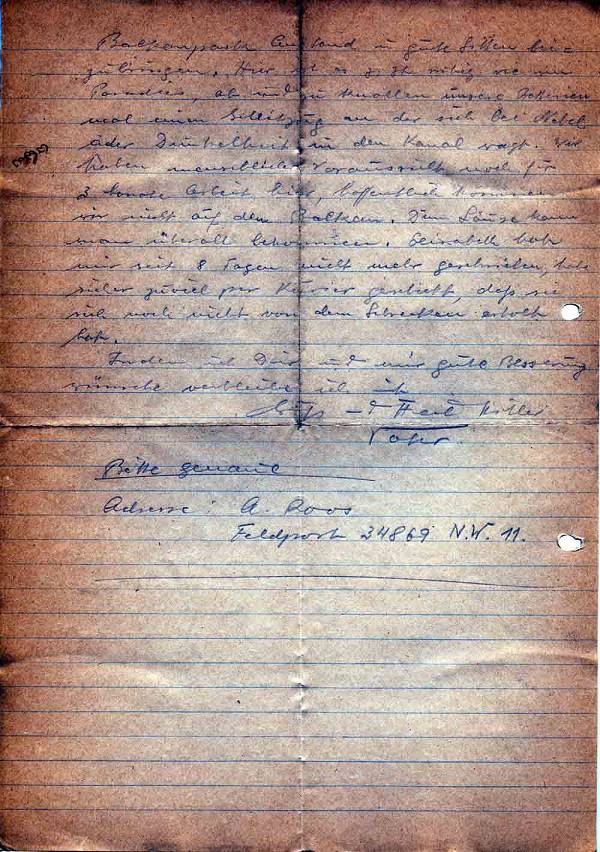 Balkanpack Anstand u gute Sitten bei=
zubringen. Hier ist es z. Zt ruhig wie im
Paradies, ab und zu knallen unsere Batterien
mal einen Geleitzug an der sich bei Nebel
oder Dunkelheit in den Kanal wagt. Wir
haben menschlicher Voraussicht noch für
3 Monate Arbeit hier, hoffentlich kommen
wir nicht auf den Balkan. Denn Läuse kann
man überall bekommen. Elisabeth hat
mir seit 8 Tagen nicht mehr geschrieben, hab
sicher zuviel per Kurier geschickt, daß sie
sich noch nicht von dem Schrecken erholt
hat.
Indem ich Dir und mir gute Besserung
wünsche verbleibe ich
Heil Hitler
Vater
Bitte genaue
Adresse: A. Roos
Feldpost 34869 N.W. 11.